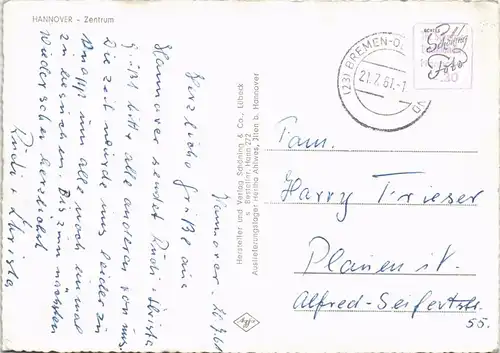 HANNOVER - Zentrum
Hannover. 20.7.61
Herzliche Grüße aus
Hannover sendet Rudi + Christa
Grüßt bitte alle anderen von uns.
Die Zeit wurde uns leider zu
knapp um alle noch einmal
zu besuchen. Bis zum nächsten
Wiedersehen herzlichst
Rudi + Christa
Hersteller und Verlag Schöning & Co., Lübeck
s Bestellnr. Hann 272
Auslieferungslager Hertha Ahlwes, Ilten b. Hannover
Agfa
(23) BREMEN
21.7.61.-1
Schöning
Foto
Fam.
Harry Trieser
Plauen i.V.
Alfred-Seifertstr.
55.